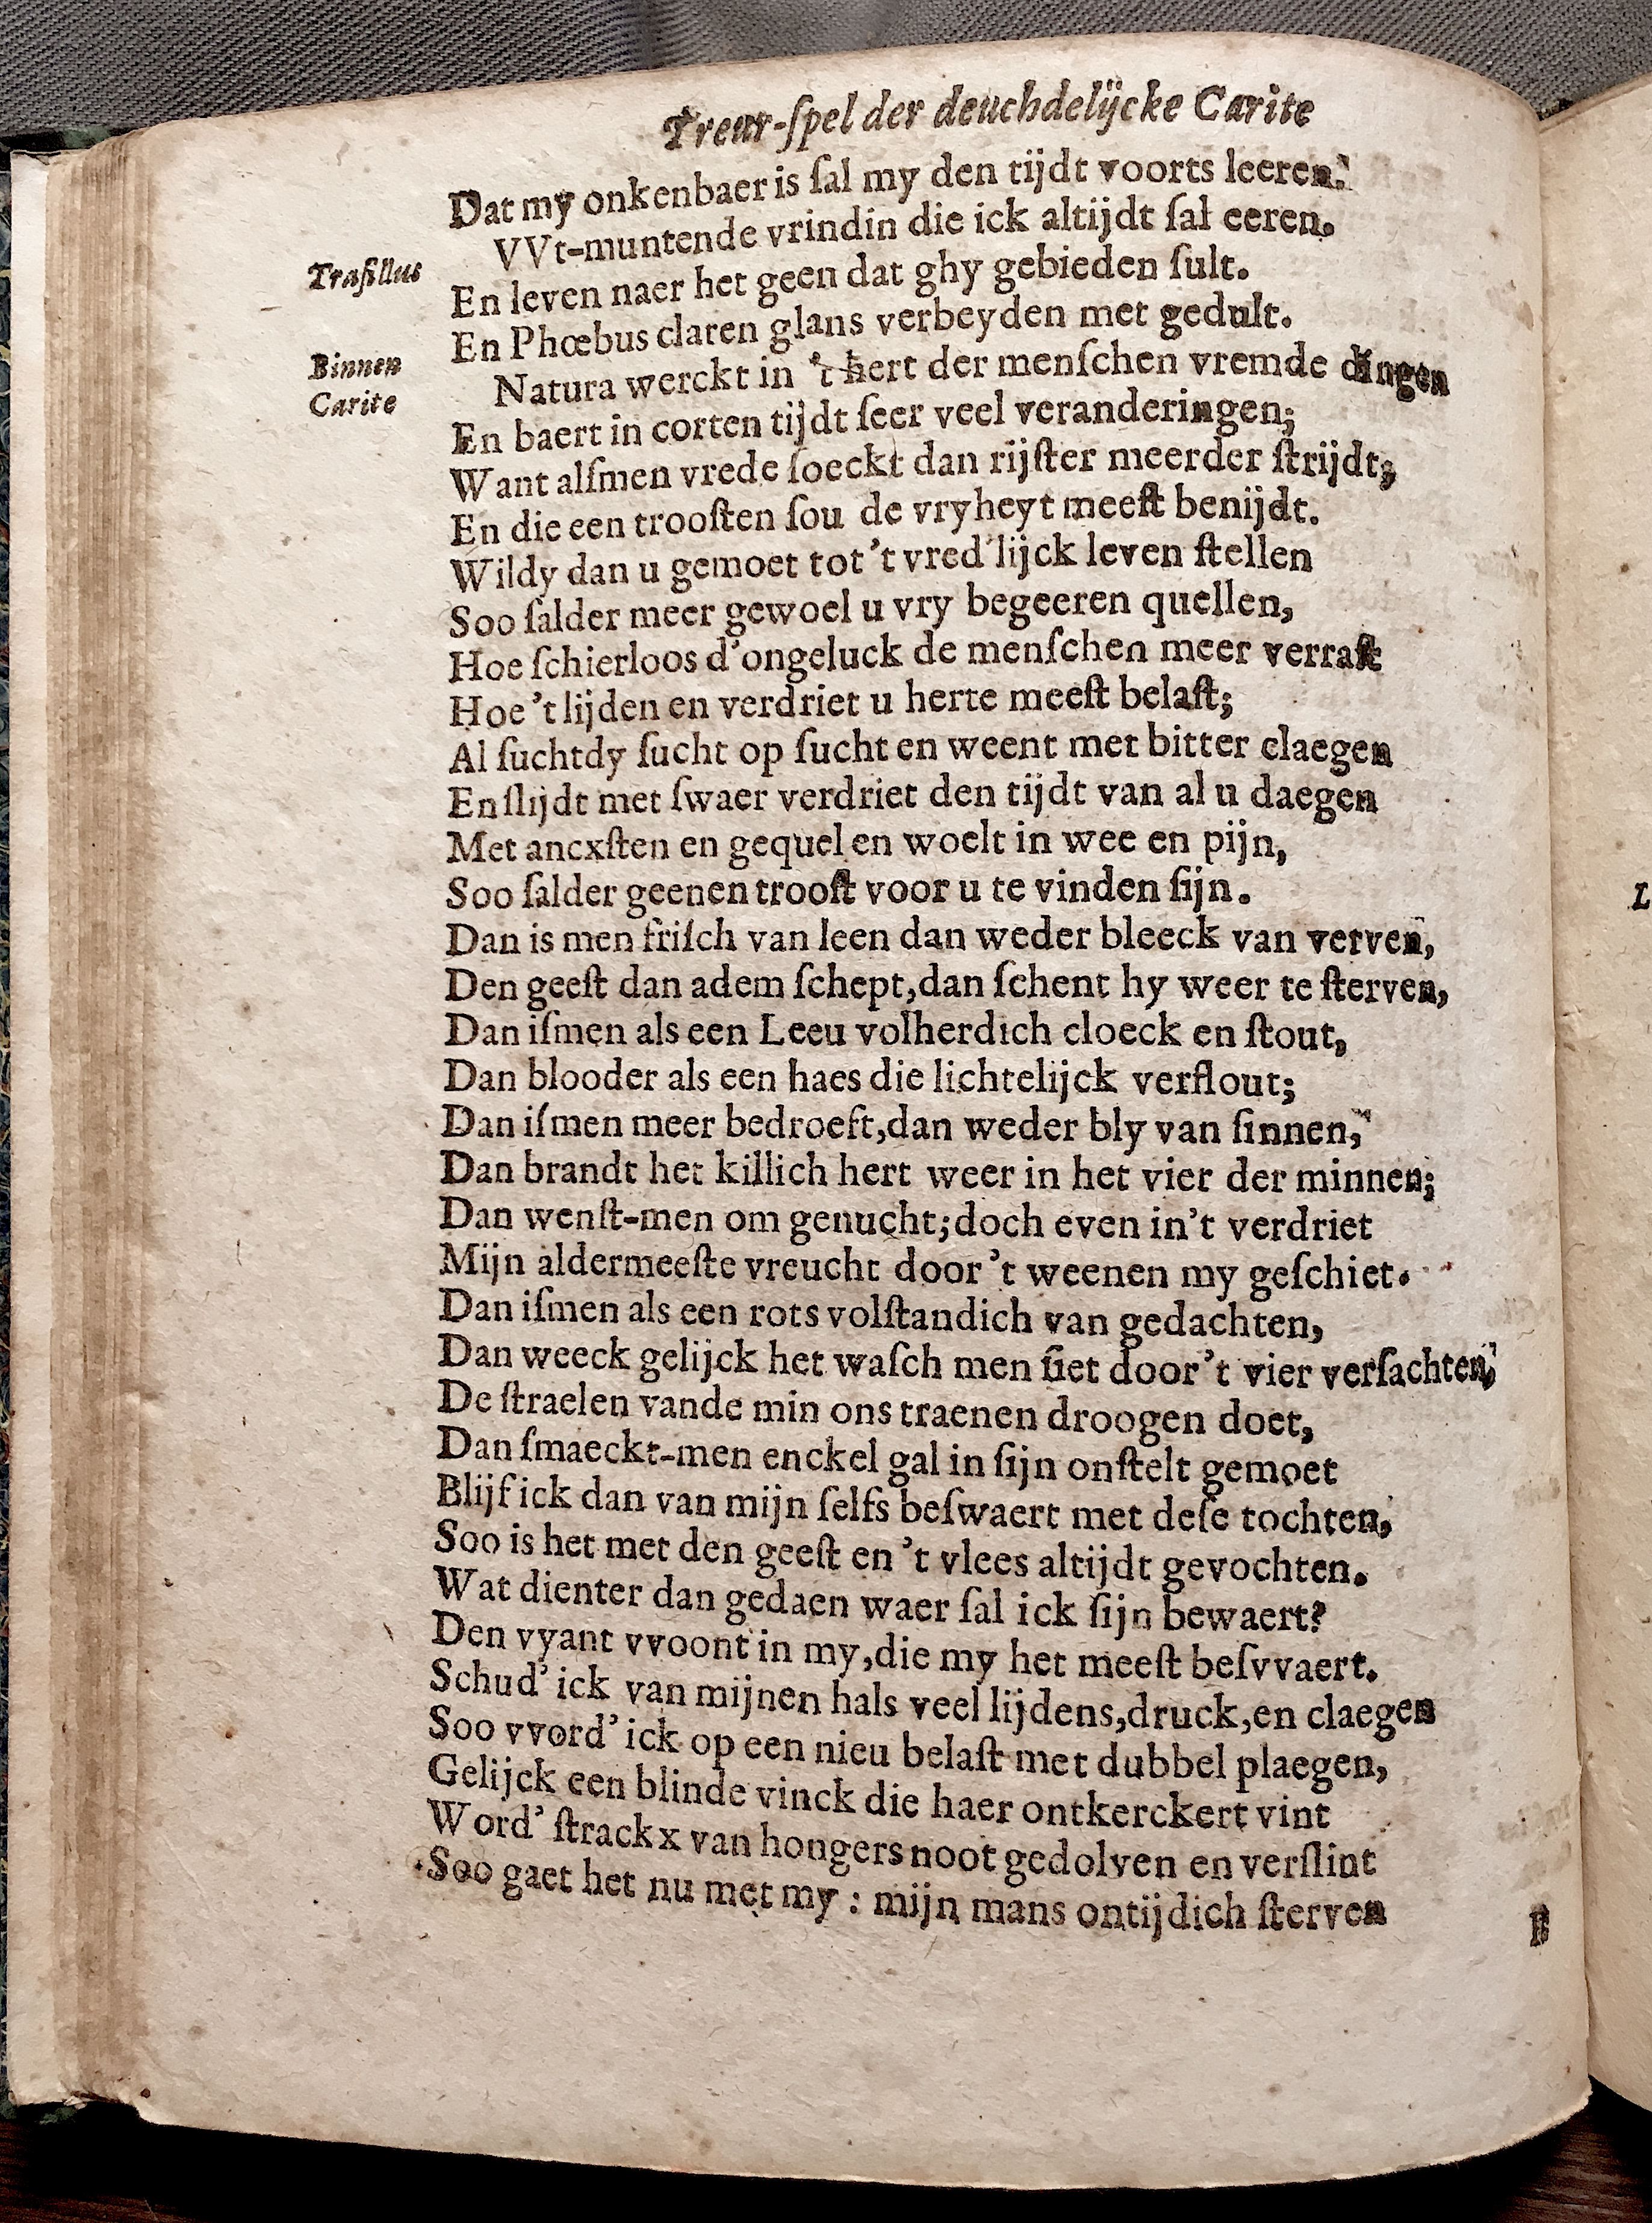 Treur-ſpel der deuchdelijcke Carite
Dat my onkenbaer is ſal my den tijdt voorts leeren.
Traſillus
VVt-muntende vrindin die ick altijdt ſal eeren.
En leven naer het geen dat ghy gebieden ſult.
En Phœbus claren glans verbeyden met gedult.
Binnen
Carite
Natura werckt in 't hert der menſchen vremde dingen
En baert in corten tijdt ſeer veel veranderingen;
Want alſmen vrede ſoeckt dan rijſter meerder ſtrijdt;
En die een trooſten ſou de vryheyt meeſt benijdt.
Wildy dan u gemoet tot 't vred'lijck leven ſtellen
Soo ſalder meer gewoel u vry begeeren quellen,
Hoe ſchierloos d'ongeluck de menſchen meer verraſt
Hoe 't lijden en verdriet u herte meeſt belaſt;
Al ſuchtdy ſucht op ſucht en weent met bitter claegen
En ſlijdt met ſwaer verdriet den tijdt van al u daegen
Met ancxſten en gequel en woelt in wee en pijn,
Soo ſalder geenen trooſt voor u te vinden ſijn.
Dan is men friſch van leen dan weder bleeck van verven,
Den geeſt dan adem ſchept, dan ſchent hy weer te ſterven,
Dan iſmen als een Leeu volherdich cloeck en ſtout,
Dan blooder als een haes die lichtelijck verflout;
Dan iſmen meer bedroeft, dan weder bly van ſinnen,
Dan brandt het killich hert weer in het vier der minnen;
Dan wenſt-men om genucht; doch even in't verdriet
Mijn aldermeeſte vreucht door 't weenen my geſchiet.
Dan iſmen als een rots volſtandich van gedachten,
Dan weeck gelijck het waſch men ſiet door 't vier verſachten,
De ſtraelen vande min ons traenen droogen doet,
Dan ſmaeckt-men enckel gal in ſijn onſtelt gemoet
Blijf ick dan van mijn ſelfs beſwaert met deſe tochten,
Soo is het met den geeſt en 't vlees altijdt gevochten.
Wat dienter dan gedaen waer ſal ick ſijn bewaert?
Den vyant vvoont in my, die my het meeſt beſvvaert.
Schud' ick van mijnen hals veel lijdens, druck, en claegen
Soo vvord' ick op een nieu belaſt met dubbel plaegen,
Gelijck een blinde vinck die haer ontkerckert vint
Word' ſtrackx van hongers noot gedolven en verſlint
Soo gaet het nu met my : mijn mans ontijdich ſterven